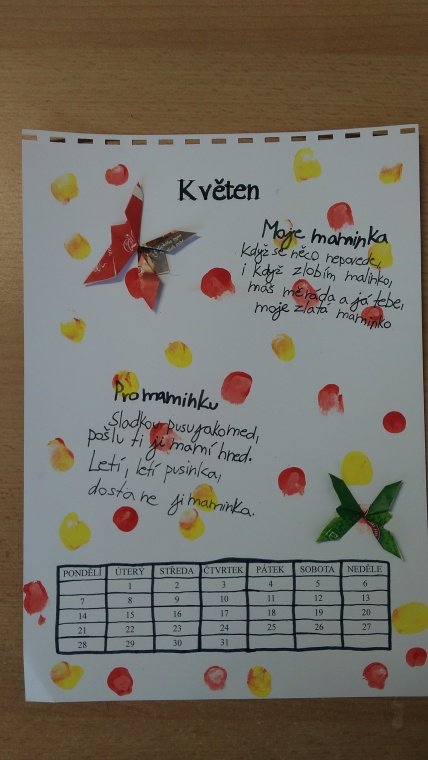 Květen
Moje maminka
Když se něco nepovede,
i když zlobím malinko,
máš mě ráda a já tebe,
moje zlatá maminko
Pro maminku
Sladkou pusu jako med,
pošlu ti ji mami hned.
Letí, letí pusinka,
dostane ji maminka.
PONDĚLÍ ÚTERÝ STŘEDA ČTVRTEK PÁTEK SOBOTA NEDĚLE
1 2 3 4 5 6
7 8 9 10 11 12 13
14 15 16 17 18 19 20
21 22 23 24 25 26 27
28 29 30 31